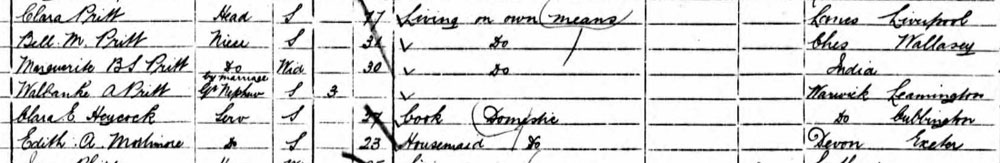 Clara Pritt Head S 77 Living on own means Lancs Liverpool
Bell M Pritt Niece S 31 Do Ches Wallasey
Marguerite B S Pritt Do by marriage Wid 30 Do India
Walbanke A Pritt Gt Nephew S 3 Warwick Leamington
Clara E Heycock Serv S 27 Cook Domestic Do Cubbington
Edith A Mortimore Do S 23 Housemaid Do Devon Exeter